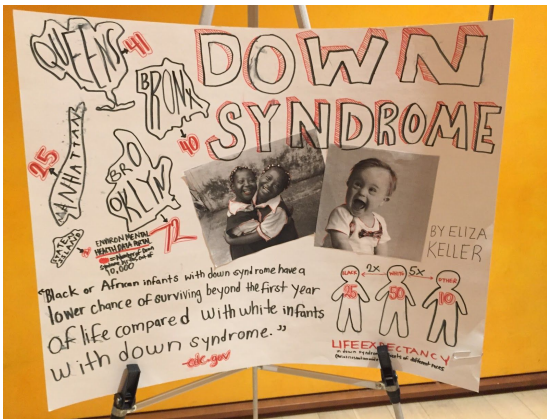 QUEENS
41
BRONX
40
MANHATTAN
25
BROOKLYN
72
STATEN
ISLAND
ENVIRONMENTAL
HEALTH DATA PORTAL
10,000
DOWN
SYNDROME
BY ELIZA
KELLER
"Black or African infants with down syndrome have a
lower chance of surviving beyond the first year
of life compared with white infants
with down syndrome."
-cdc.gov
BLACK 2x WHITE 5x OTHER
25 50 10
LIFE EXPECTANCY